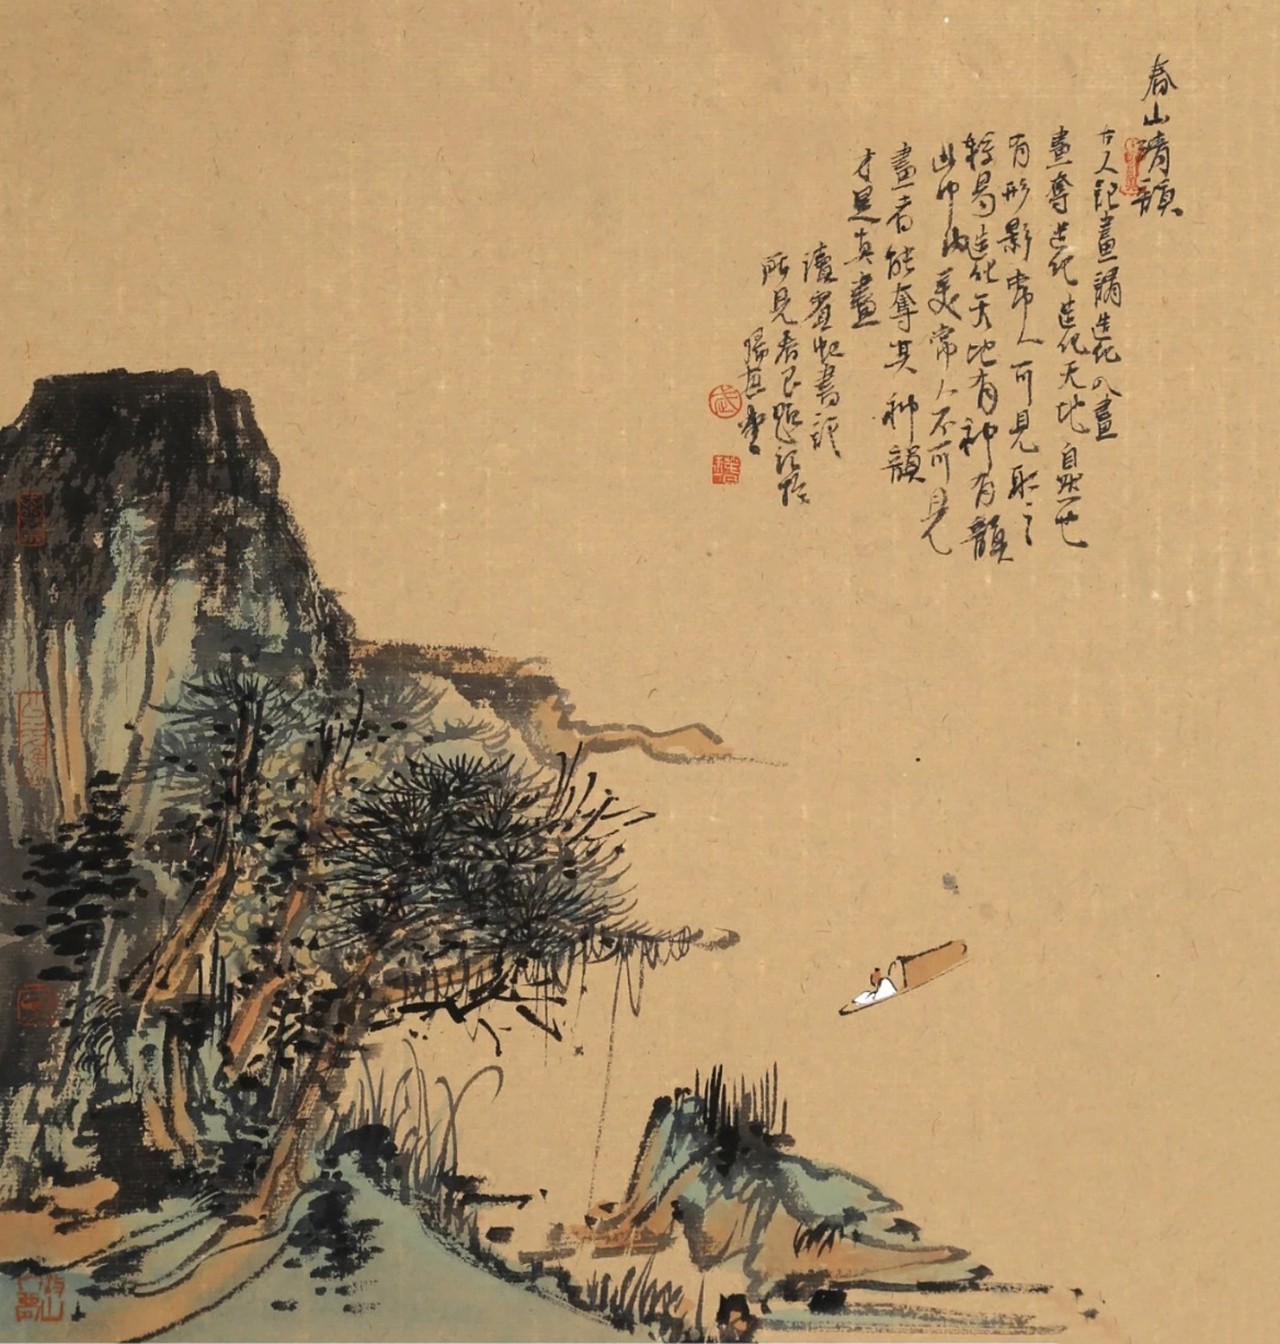 春山清韻
古人記畫謂造化入畫
畫奪造化造化天地自然也
有形影常人可見取之
較易造化天地有神有韻
此中內美常人不可見
畫者能奪其神韻
才是真畫
讀賓虹書記
所見者